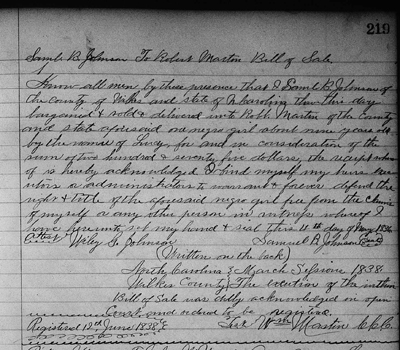 219
Saml. B. Johnson To Robert Martin Bill of Sale
Know all men by these presence that I Saml. B. Johnson of
the county of Wilkes and state of N Carolina Have this day
bargained & sold & delivered unto Robt. Martin of the County
and state aforesaid one negro girl about nine years old
by the name of Lucy for and in consideration of the
sum of two hundred & seventy five dollars the receipt where
of is hereby acknowledged I bind myself my heirs exe
utors or administrators to warrant & forever defend the
right & title of the aforesaid negro girl free from the claims
of myself or any other person in witness whereof I
have hereunto set my hand & seal this 11th day of May 1836
Attest Wiley G. Johnson Samuel B. Johnson (Seal)
(Written on the back)
North Carolina & March Sessions 1838
Wilkes County The execution of the within
Bill of Sale was duly acknowledged in open
Court and ordered to be registered
Registered 12th June 1838 Wm Mastin C.C.C.